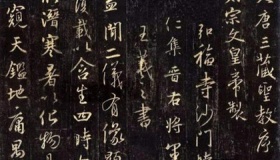 大唐三藏聖教序
太宗文皇帝製
弘福寺沙門
仁集晉右將軍
王羲之書
蓋聞二儀有像顯
覆載以含生四時
潛寒暑以化物
窺天鑑地庸愚